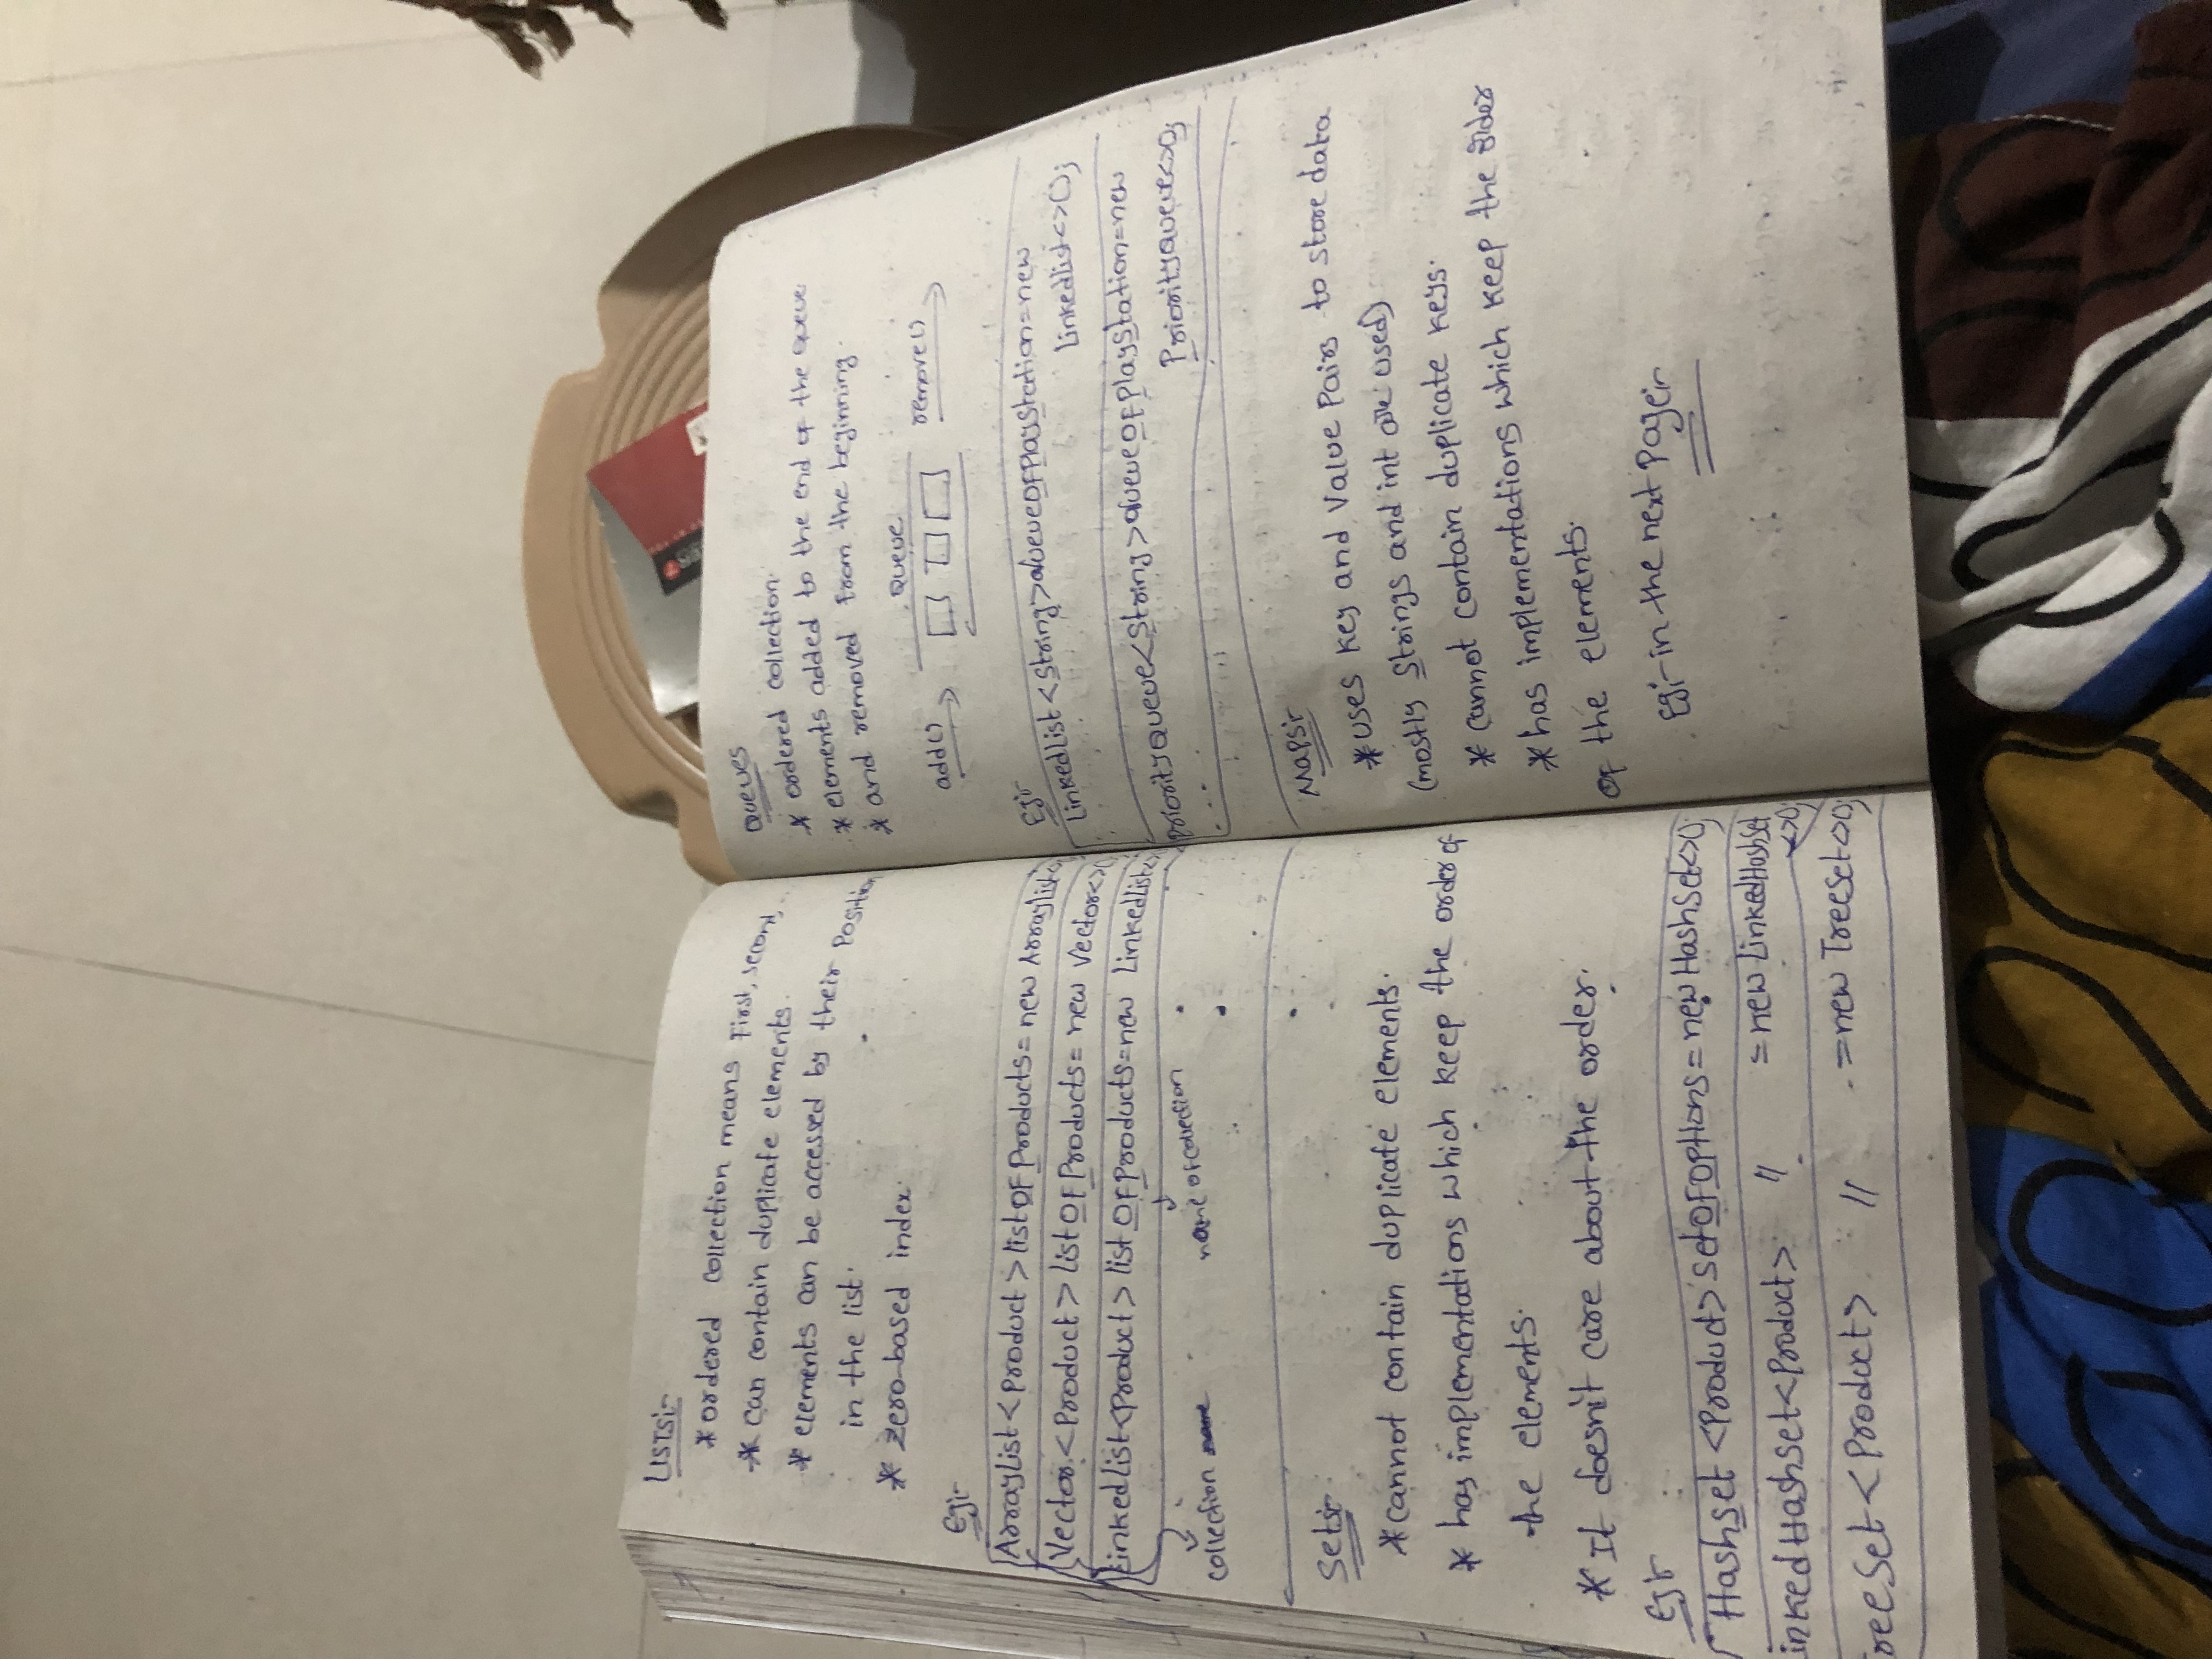 LISTS:-
* ordered collection means First, second, ...
* can contain duplicate elements.
* elements can be accessed by their Position
in the list.
* zero-based index.
Eg:-
ArrayList<Product>listOFProducts= new ArrayList<>
Vector<Product>listOFProducts= new Vector<>(
LinkedList<Product> listOFProducts=new LinkedList<>
collection
name of collection
Sets:-
* cannot contain duplicate elements.
* has implementations which keep the order of
the elements.
* It doesn't care about the order.
Eg:-
Hashset <Product> SetOFOptions = new HashSet<>();
inkedHashSet<Product> " = new LinkedHashSet
<>();
reeSet<Product> " =new TreeSet<>();
Queues
* ordered collection.
* elements added to the end of the queue
* and removed from the beginning.
Queue
add() remove()
Eg:-
LinkedList<String>QueueOFPlayStation=new
LinkedList<>();
PriorityQueue<String>QueueOFPlayStation=new
PriorityQueue<>();
...
Maps:-
* uses key and Value Pairs to store data
(mostly Strings and int are used)
* cannot contain duplicate keys.
* has implementations which keep the order
of the elements.
Eg:-in the next Page:-